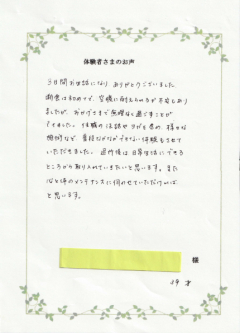 体験者さまのお声
3日間お世話になりありがとうございました。
断食は初めてで、空腹に耐えられるか不安もあり
ましたが、おかげさまで無理なく過ごすことが
できました。住職の法話やヨガも含め、様々な
普段なかなかできない体験もさせて
いただきました。退所後は日常生活にできる
ところから取り入れていきたいと思います。また
心と体のメンテナンスに伺わせていただければ
と思います。
様
才